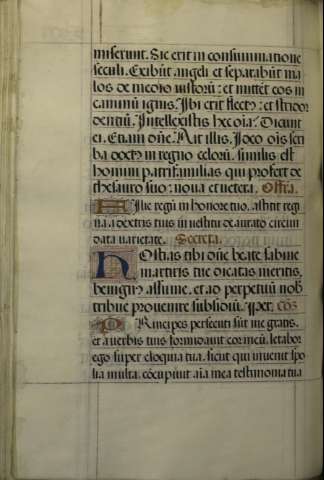 miserunt. Sic erit in consummatione
seculi. Exibūt angeli et separabūt ma
los de medio iustorū: et mittēt eos in
caminū ignis. Ibi erit fletꝰ: et stridor
dentiū. Intellexistis hec oīa? Dicunt
ei. Etiam dn̄e. Ait illis. Ideo oīs scri
ba doctꝰ in regno celorū, similis est
homini patrifamilias qui profert de
thesauro suo: noua et uetera. Offra.
Filie regū in honore tuo, astitit regi
na a dextris tuis in uestitu deaurato circun
data uarietate. Secreta.
Hostias tibi dn̄e beate sabine
martiris tue dicatas meritis,
benignꝰ assume, et ad perpetuū nob̄
tribue prouenire subsidiū. Per. cōō
Principes persecuti sūt me gratis,
et a uerbis tuis formidauit cor meū, letabor
ego super eloquia tua, sicut qui inuenit spo
lia multa. cōcupiuit aīa mea testimonia tua